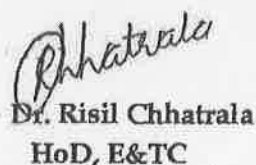 Chhatrala
Dr. Risil Chhatrala
HoD, E&TC